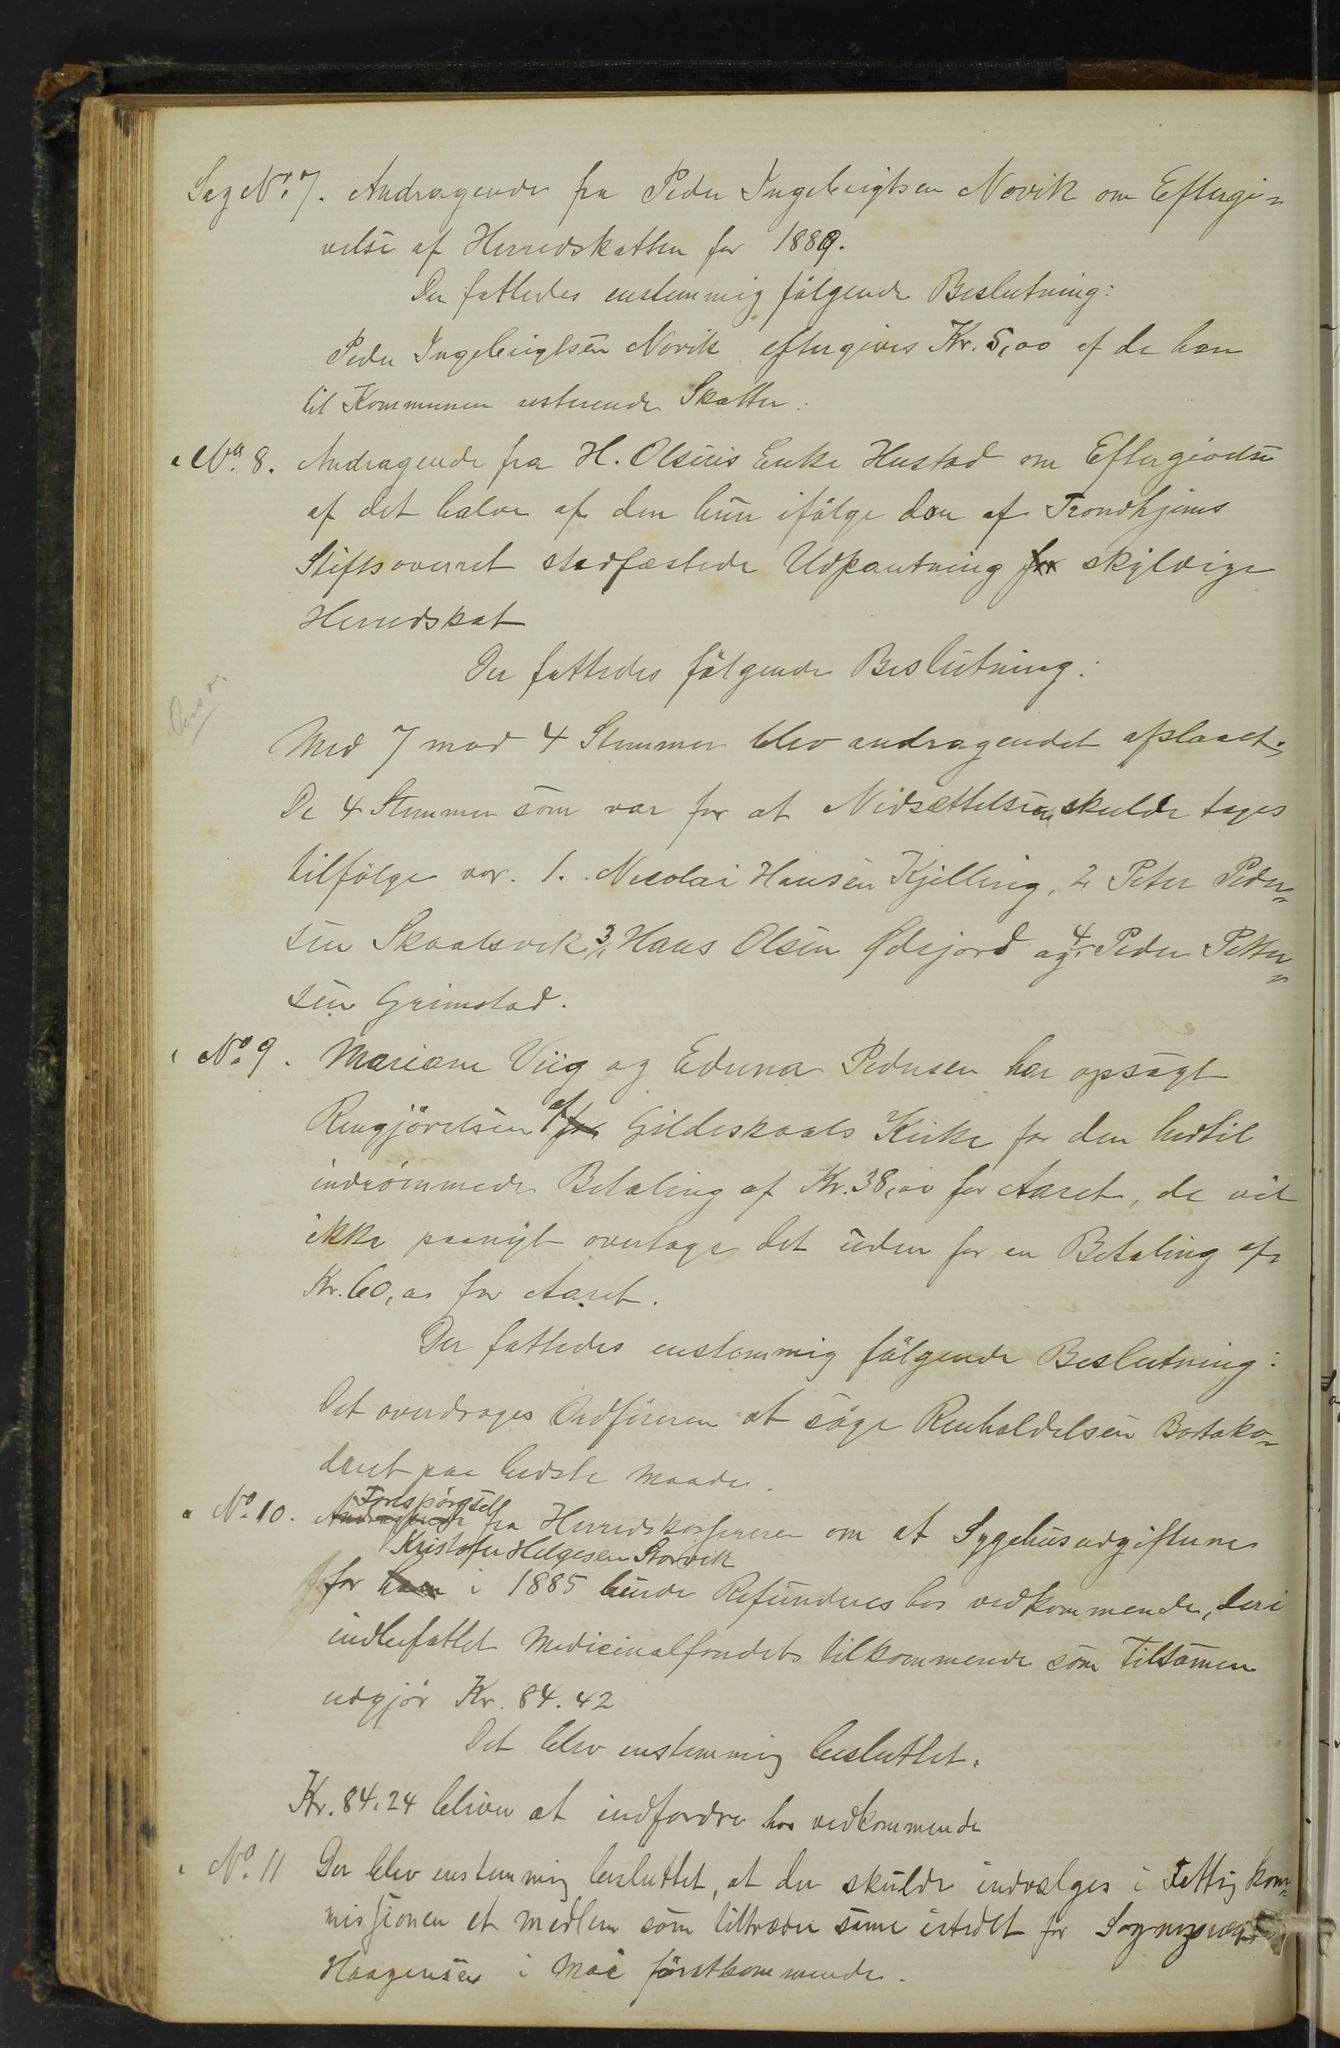 Sag No. 7. Andragende fra Peder Ingebrigtsen Novik om Eftergi=
velse af Herredskatten for 1889.
Der fattedes enstemmig følgende Beslutning:
Peder Ingebrigtsen Novik eftergives Kr. 5,00 af de han
til Kommunen resterende Skatter.
" No. 8. Andragende fra H. Olsens Enke Hustad om Eftergivelse
af det halve af den hun ifølge den af Trondhjems
Stiftsoverret stadfæstede Udpantning for skyldige
Herredskat
Der fattedes følgende Beslutning:
Med 7 mod 4 Stemmer blev andragendet afslaaet.
De 4 Stemmer som var for at Nedsættelsen skulde tages
tilfølge var. 1. Nicolai Hansen Kjelling, 2 Peter Peder=
sen Skaalsvik, 3, Hans Olsen Ødejord og 4. Peder Petter=
sen Grimstad.
" No. 9. Mariane Viig og Edvina Pedersen har opsagt
Rengjørelsen af for Gildeskaals Kirke for den hidtil
indrømmede Betaling af Kr. 38,00 for Aaret, de vil
ikke paanyt overtage det uden for en Betaling af
Kr. 60,00 for Aaret.
Der fattedes enstemmig følgende Beslutning:
Det overdrages Ordføreren at søge Renholdelsen Bortako=
deret paa bedste Maade.
Forespørgsel
" No. 10. Andragende fra Herredskassereren om at Sygehusudgifterne
Kristofer Helgesen Storvik
for ham i 1885 burde Refunderes hos vedkommende, deri
indbefattet Medicinalfondets tilkommende som Tilsamen
udgjør Kr. 84.42
Det blev enstemmig besluttet.
Kr. 84.24 bliver at indfordre hos vedkommende
" No. 11 Der blev enstemmig besluttet, at der skulde indvælges i Fattigkom=
missionen et medlem som tiltræder same istedet for
Haagensen i Mai førstkommende.